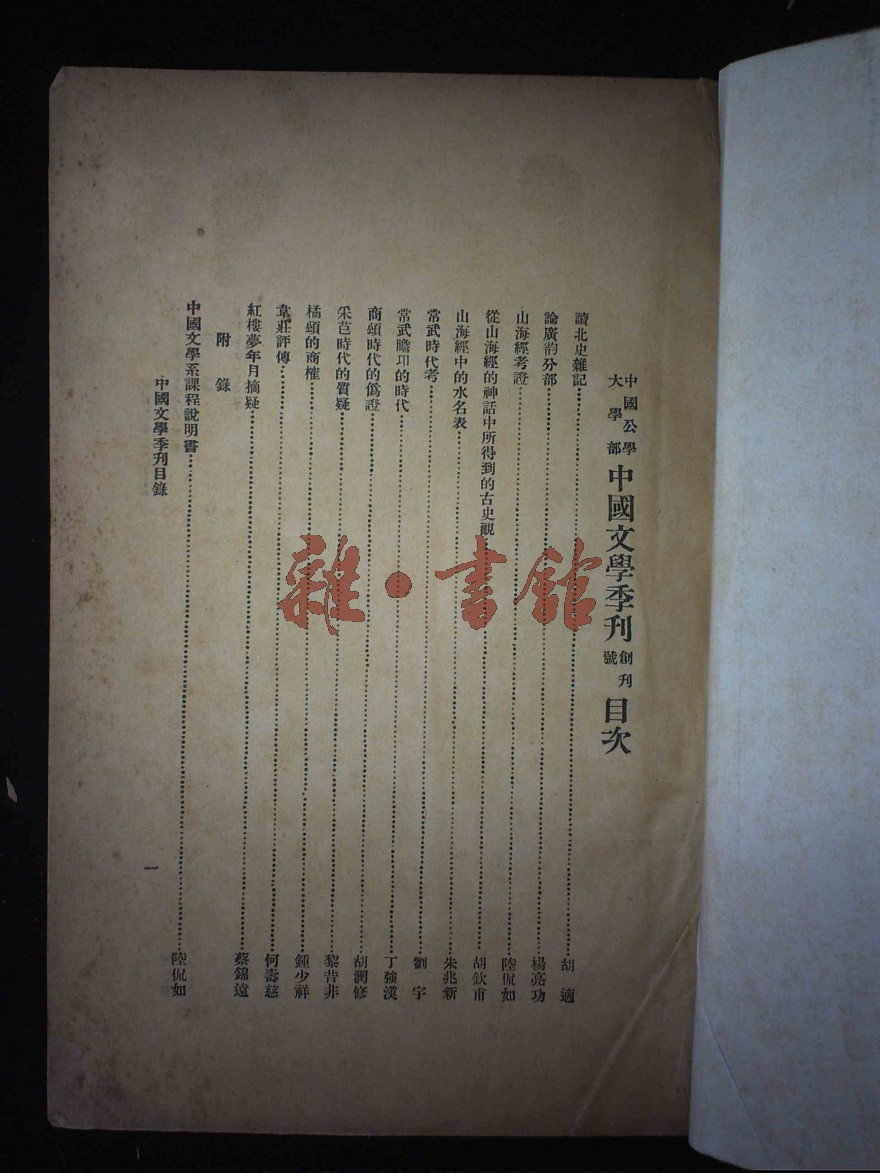 中國公學
大學部
中國文學季刊
創刊
號
目次
讀北史雜記……胡適
論廣韵分部……楊亮功
山海經考證……陸侃如
從山海經的神話中所得到的古史觀……胡欽甫
山海經中的水名表……朱兆新
常武時代考……劉宇
常武瞻卬的時代……丁強漢
商頌時代的僞證……胡潤修
采芑時代的質疑……黎昔非
橘頌的商榷……鍾少祥
韋莊評傳……何壽慈
紅樓夢年月摘疑……蔡錦遠
附錄
中國文學系課程說明書……陸侃如
中國文學季刊目錄
一
雜·書館